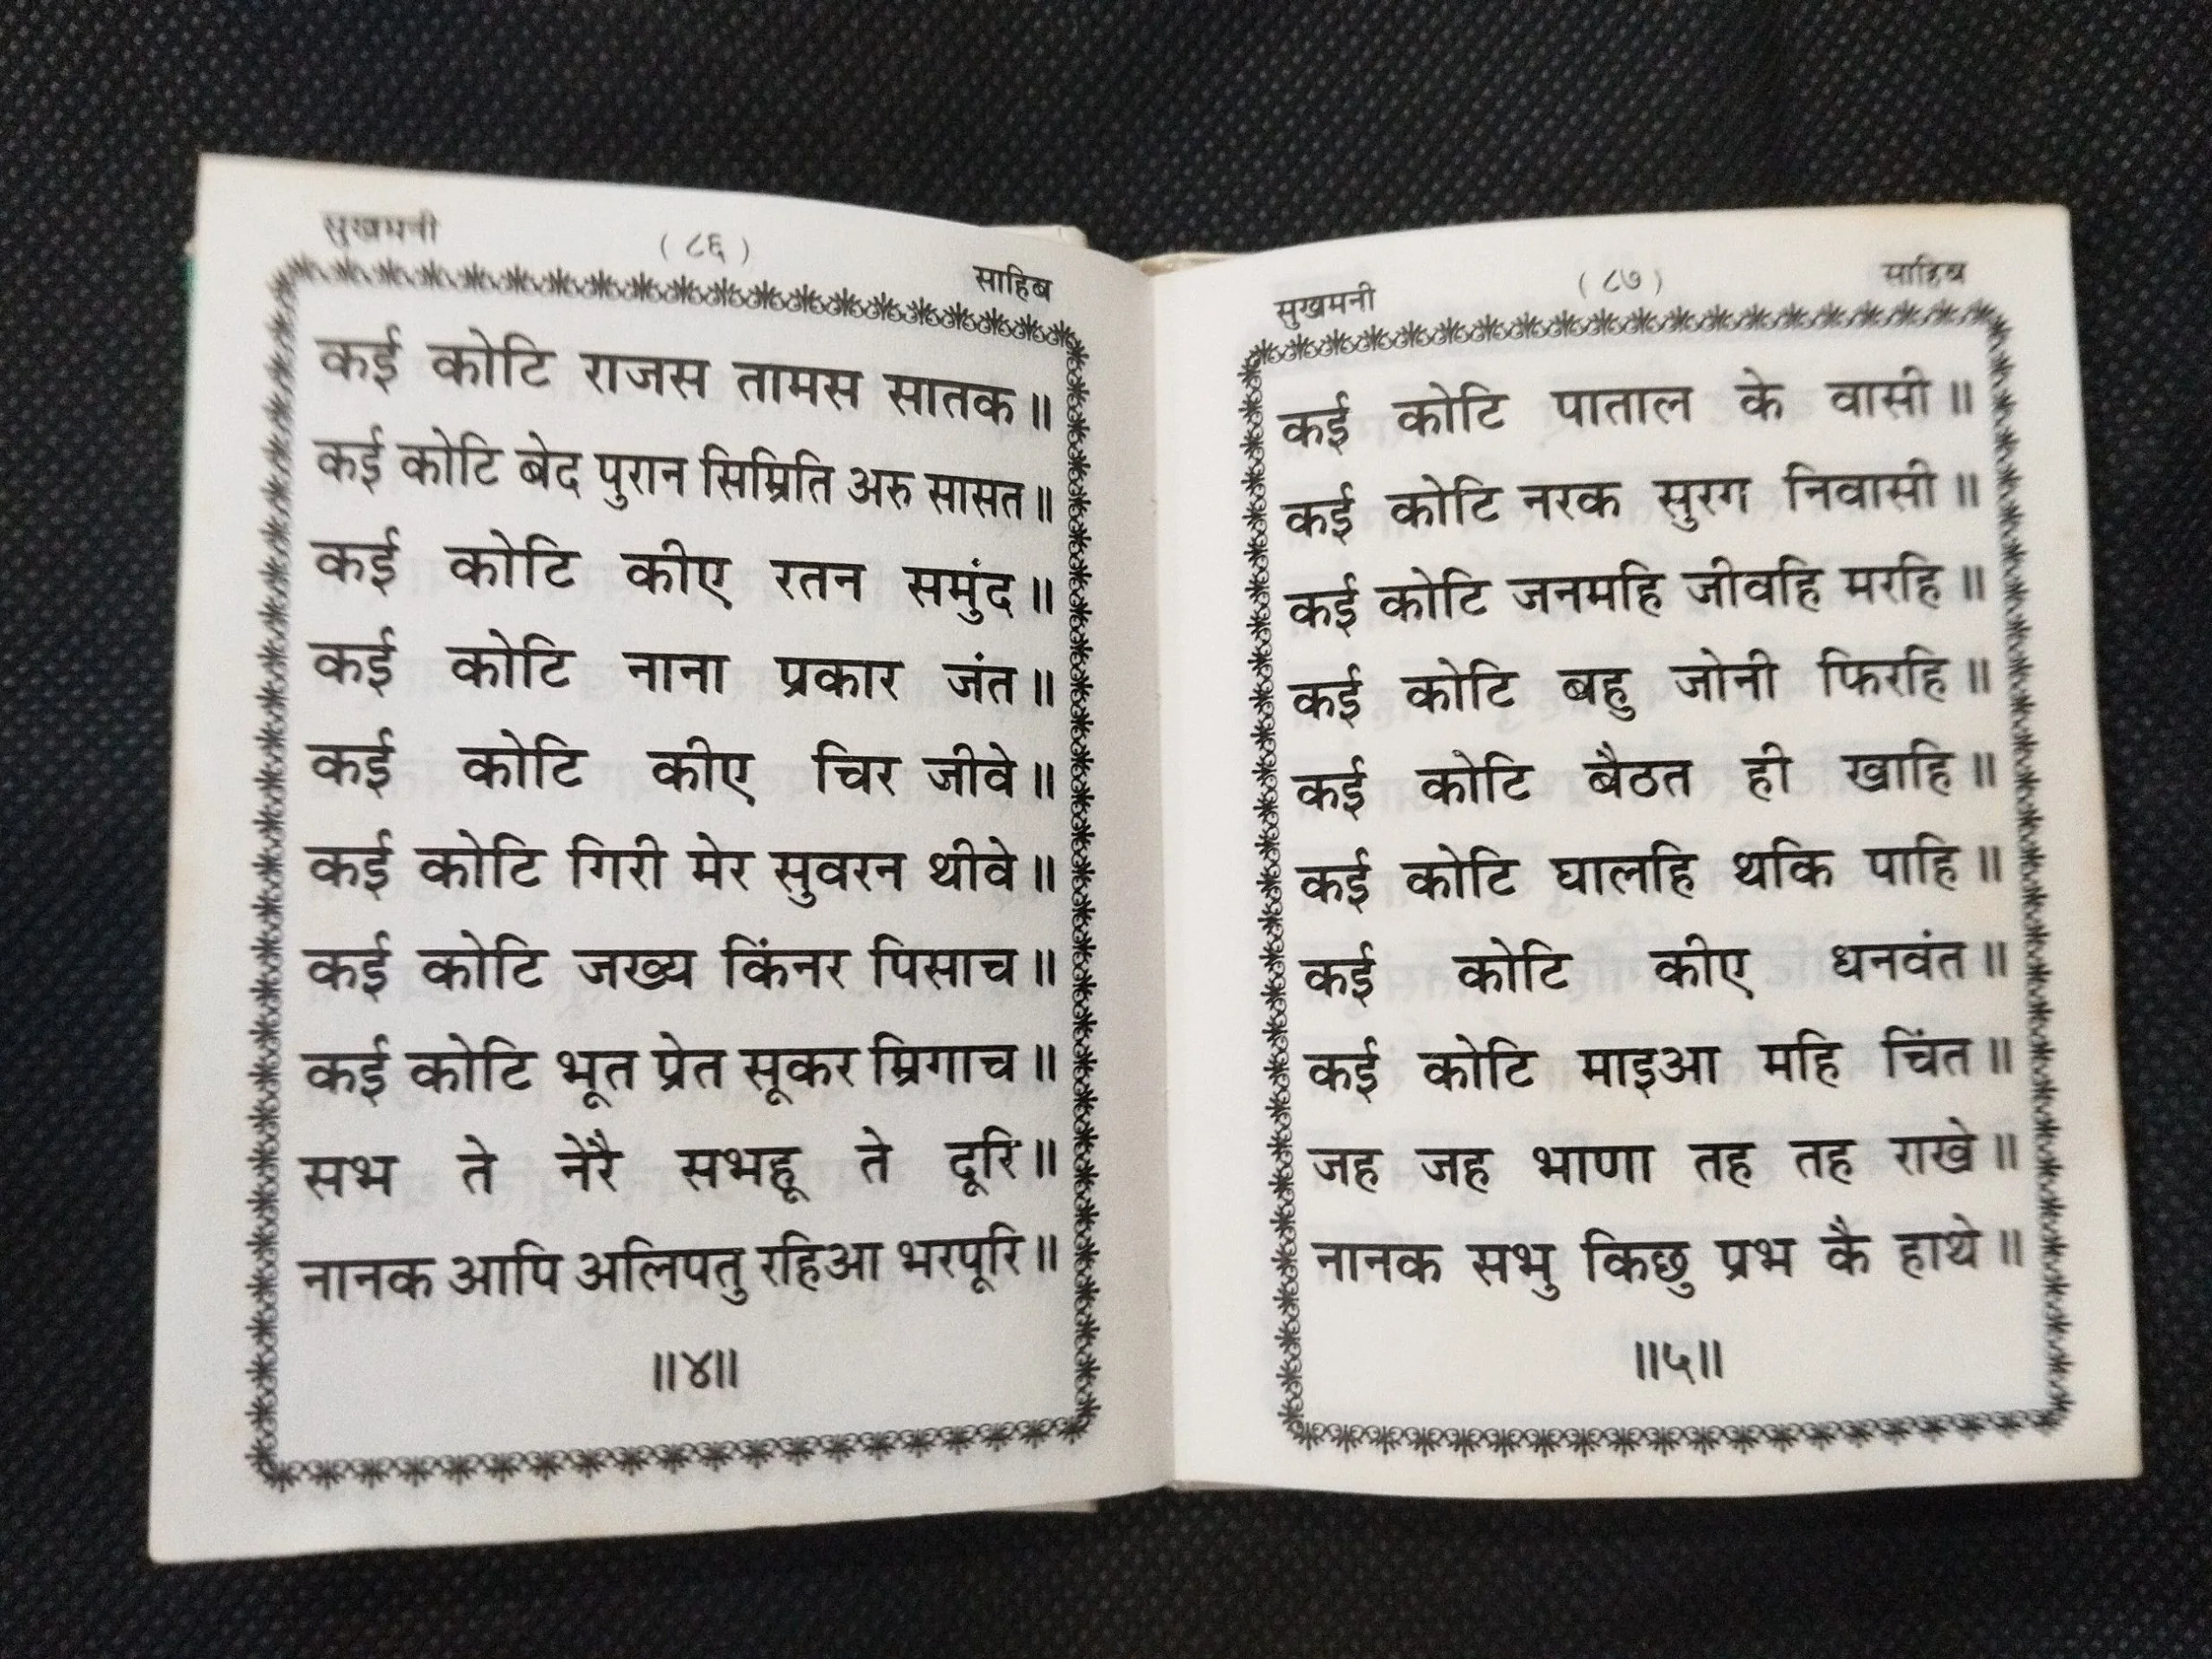 सुखमनी (८६) साहिब
कई कोटि राजस तामस सातक॥
कई कोटि बेद पुरान सिम्रिति अरु सासत॥
कई कोटि कीए रतन समुंद॥
कई कोटि नाना प्रकार जंत॥
कई कोटि कीए चिर जीवे॥
कई कोटि गिरी मेर सुवरन थीवे॥
कई कोटि जख्य किंनर पिसाच॥
कई कोटि भूत प्रेत सूकर म्रिगाच॥
सभ ते नेरै सभहू ते दूरि॥
नानक आपि अलिपतु रहिआ भरपूरि॥
॥४॥
सुखमनी (८७) साहिब
कई कोटि पाताल के वासी॥
कई कोटि नरक सुरग निवासी॥
कई कोटि जनमहि जीवहि मरहि॥
कई कोटि बहु जोनी फिरहि॥
कई कोटि बैठत ही खाहि॥
कई कोटि घालहि थकि पाहि॥
कई कोटि कीए धनवंत॥
कई कोटि माइआ महि चिंत॥
जह जह भाणा तह तह राखे॥
नानक सभु किछु प्रभ कै हाथे॥
॥५॥